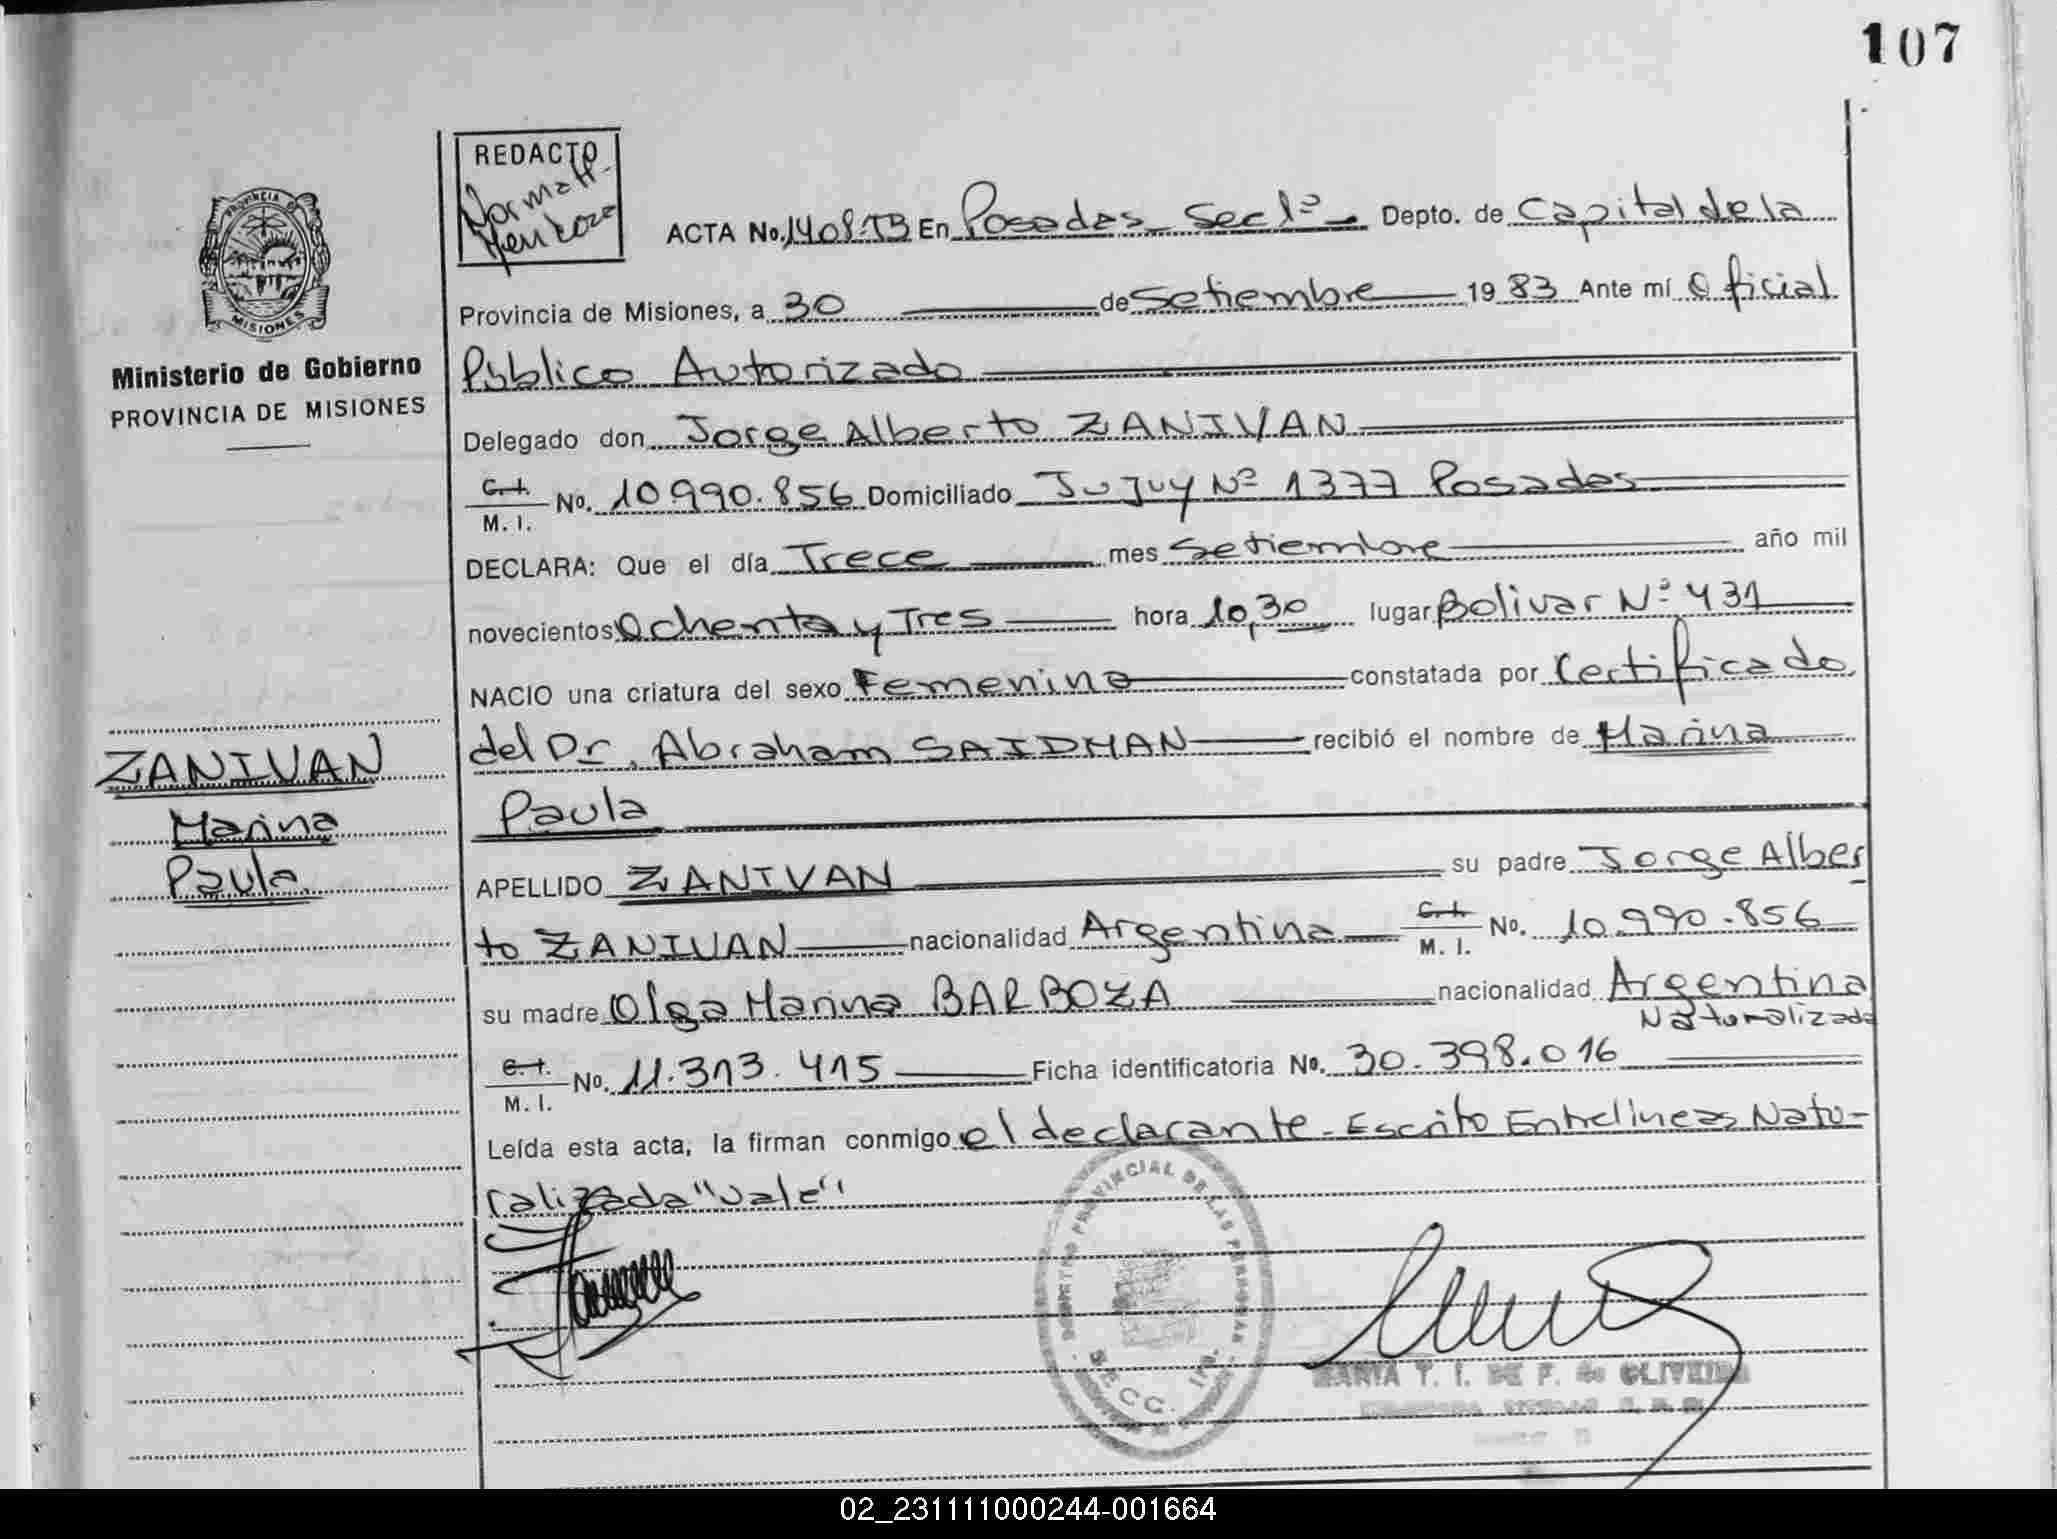 107
REDACTO
Norma H.
Mendoza
PROVINCIA DE
MISIONES
Ministerio de Gobierno
PROVINCIA DE MISIONES
ACTA No. 1408-TB En Posadas Sec 1ª Depto. de Capital de la
Provincia de Misiones, a 30 de Setiembre 1983 Ante mí Oficial
Público Autorizado
Delegado don Jorge Alberto ZANIVAN
C.I.
M. I. No. 10.990.856 Domiciliado Jujuy Nº 1377 Posadas
DECLARA: Que el día Trece mes Setiembre año mil
novecientos Ochenta y Tres hora 10,30 lugar Bolivar Nº 431
NACIO una criatura del sexo Femenino constatada por Certificado
del Dr. Abraham SAIDMAN recibió el nombre de Marina
Paula
ZANIVAN
Marina
Paula
APELLIDO ZANIVAN su padre Jorge Alber
to ZANIVAN nacionalidad Argentina C.I. M. I. No. 10.990.856
su madre Olga Marina BARBOZA nacionalidad Argentina
Naturalizada
C.I.
M. I. No. 11.313.415 Ficha identificatoria No. 30.398.016
Leída esta acta, la firman conmigo el declarante - Escrito Entrelineas Natu-
ralizada "vale"
PROVINCIAL DE LAS PERSONAS
SECC. 1ra.
MARIA T. I. DE F. de OLIVEIRA
02_231111000244-001664